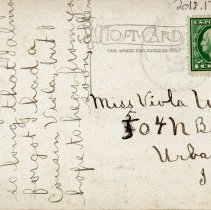 2018.1
POST CARD
THIS SPACE FOR ADDRESS ONLY
Miss Viola
504 N B
Urba
I
so long that I almo
forgot I had a
Cousin Viola, but I
hope to hear from you
soon,